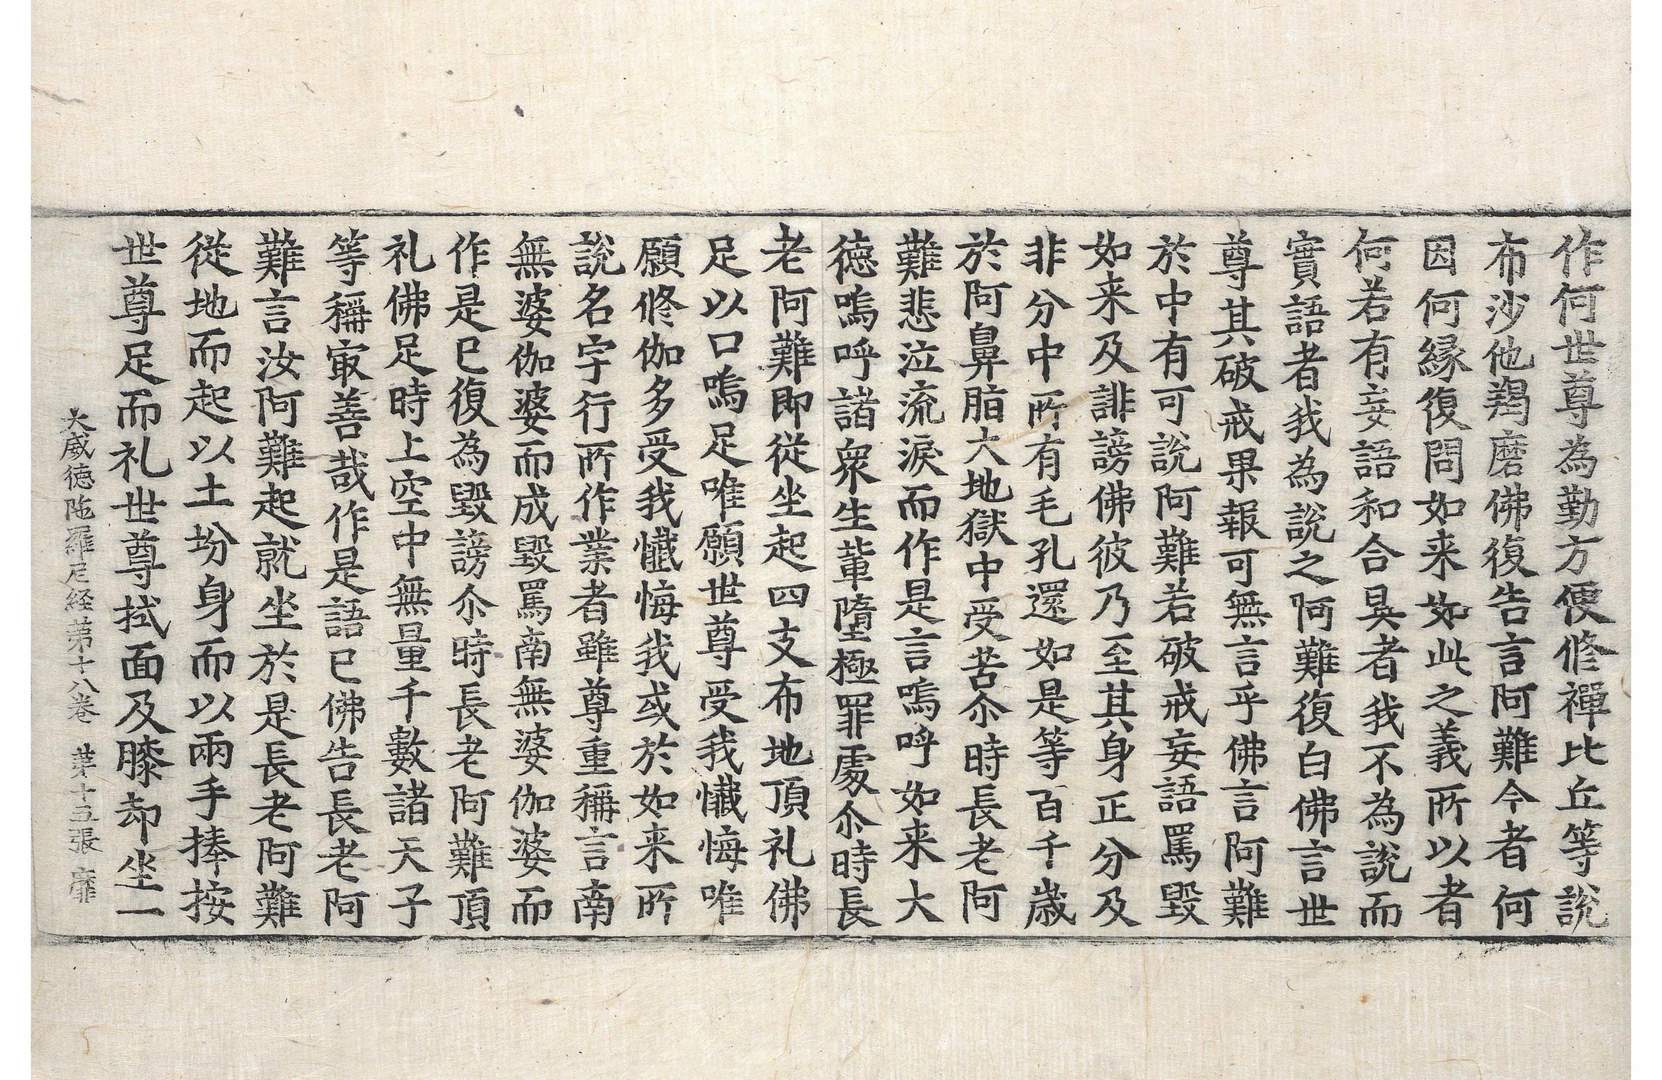 作何世尊為勤方便修禪比丘等說
布沙他羯磨佛復告言阿難今者何
因何縁復問如来如此之義所以者
何若有妄語和合具者我不為說而
實語者我為說之阿難復白佛言世
尊其破戒果報可無言乎佛言阿難
於中有可說阿難若破戒妄語罵毀
如来及誹謗佛彼乃至其身正分及
非分中所有毛孔還如是等百千歲
於阿鼻脂大地獄中受苦尒時長老阿
難悲泣流淚而作是言嗚呼如来大
德嗚呼諸衆生輩墮極罪處尒時長
老阿難即從坐起四支布地頂礼佛
足以口嗚足唯願世尊受我懺悔唯
願修伽多受我懺悔我或於如来所
說名字行所作業者雖尊重稱言南
無婆伽婆而成毀罵南無婆伽婆而
作是已復為毀謗尒時長老阿難頂
礼佛足時上空中無量千數諸天子
等稱㝡善哉作是語已佛告長老阿
難言汝阿難起就坐於是長老阿難
從地而起以土坌身而以兩手捧按
世尊足而礼世尊拭面及膝却坐一
大威德陁羅尼経苐十八卷 苐十五張